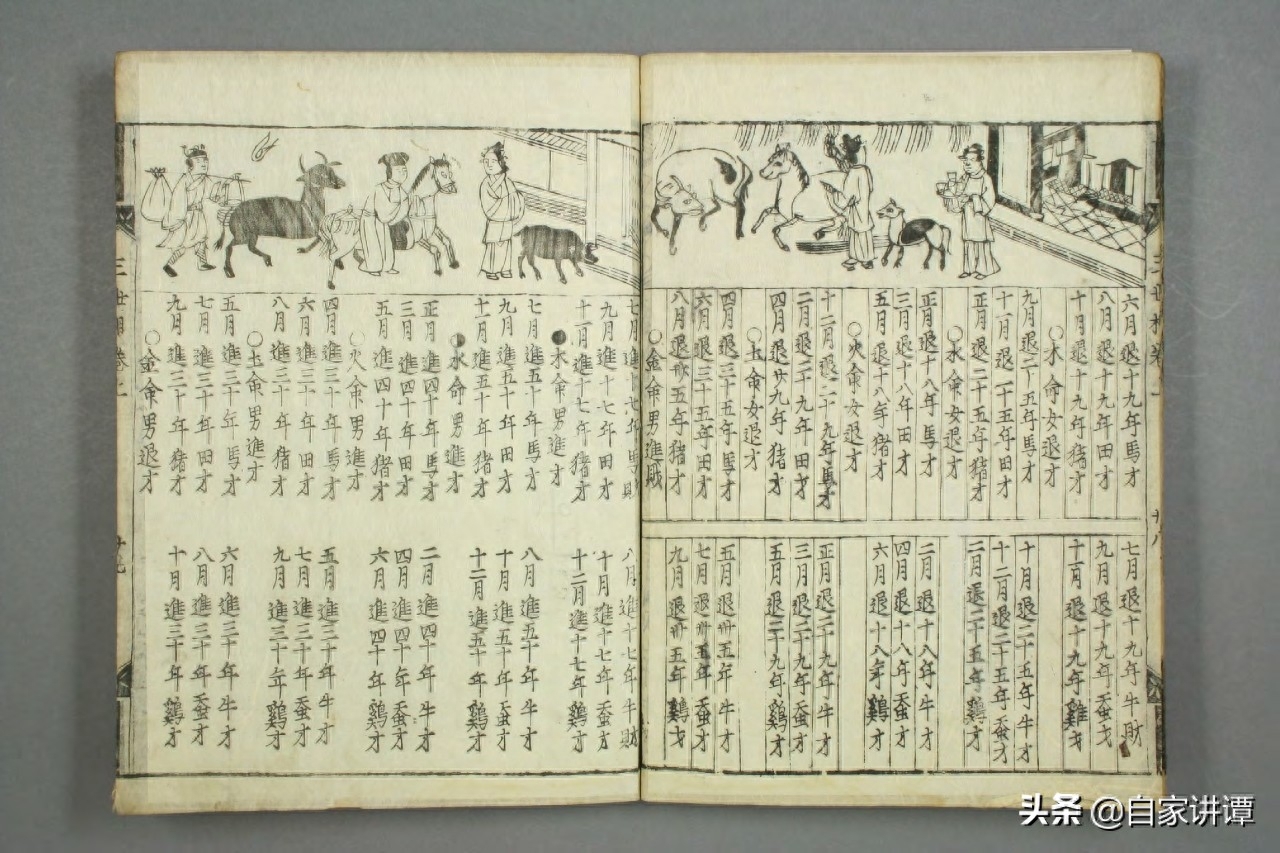 六月退十九年馬才
八月退十九年田才
十月退十九年猪才
○木命女退才
九月退二十五年馬才
十一月退二十五年田才
正月退二十五年猪才
○水命女退才
正月退十八年馬才
三月退十八年田才
五月退十八年猪才
○火命女退才
十二月退二十九年馬才
二月退二十九年田才
四月退廿九年猪才
○土命女退才
四月退三十五年馬才
六月退三十五年田才
八月退卅五年猪才
○金命男進財
七月退十九年牛財
九月退十九年蚕才
十一月退十九年雞才
十月退二十五年牛才
十二月退二十五年蚕才
二月退二十五年鷄才
二月退十八年牛才
四月退十八年蚕才
六月退十八年鷄才
正月退二十九年牛才
三月退二十九年蚕才
五月退二十九年鷄才
五月退卅五年牛才
七月退卅五年蚕才
九月退卅五年鷄才
七月進十七年馬財
九月進十七年田才
十一月進十七年猪才
●木命男進才
七月進五十年馬才
九月進五十年田才
十一月進五十年猪才
水命男進才
正月進四十年馬才
三月進四十年田才
五月進四十年猪才
○火命男進才
四月進三十年馬才
六月進三十年田才
八月進三十年猪才
○土命男進才
五月進三十年馬才
七月進三十年田才
九月進三十年猪才
○金命男退才
八月進十七年牛財
十月進十七年蚕才
十二月進十七年鷄才
八月進五十年牛才
十月進五十年蚕才
十二月進五十年鷄才
二月進四十年牛才
四月進四十年蚕才
六月進四十年鷄才
五月進三十年牛才
七月進三十年蚕才
九月進三十年鷄才
六月進三十年牛才
八月進三十年蚕才
十月進三十年鷄才
头条 @自家讲谭